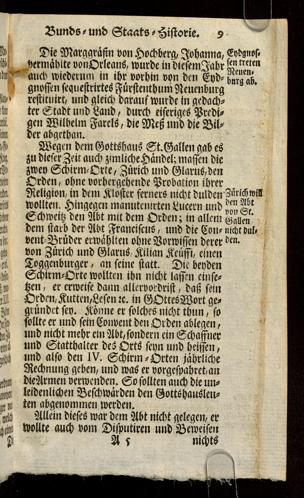 Bunds- und Staats-Historie. 9
Die Marggräfin von Hochberg, Johanna,
vermählte von Orleans, wurde in diesem Jahr
auch wiederum in ihr vorhin von den Eyd-
gnossen sequestrirtes Fürstenthum Neuenburg
restituirt, und gleich darauf wurde in gedach-
ter Stadt und Land, durch eiferiges Predi-
gen Wilhelm Farels, die Meß und die Bil-
der abgethan.
Eydgnos-
sen treten
Neuen-
burg ab.
Wegen dem Gottshaus St. Gallen gab es
zu dieser Zeit auch zimliche Händel; massen die
zwey Schirm-Orte, Zürich und Glarus, den
Orden, ohne vorhergehende Probation ihrer
Religion, in dem Kloster ferners nicht dulden
wollten. Hingegen manutenirten Lucern und
Schweitz den Abt mit dem Orden; in allem
dem starb der Abt Franciscus, und die Con-
vent-Brüder erwählten ohne Vorwissen derer
von Zürich und Glarus, Kilian Keuffi, einen
Toggenburger, an seine statt. Die beyden
Schirm-Orte wollten ihn nicht lassen einse-
tzen, er erweise dann allervordrist, daß sein
Orden, Kutten, Lesen ꝛc. in GOttes Wort ge-
gründet sey. Könne er solches nicht thun, so
sollte er und sein Convent den Orden ablegen,
und nicht mehr ein Abt, sondern ein Schaffner
und Statthalter des Orts seyn und heissen,
und also den IV. Schirm-Orten jährliche
Rechnung geben, und was er vorgespahret an
die Armen verwenden. So sollten auch die un-
leidenlichen Beschwärden den Gottshausleu-
ten abgenommen werden.
Zürich will
den Abt
von St.
Gallen
nicht dul-
den.
Allein dieses war dem Abt nicht gelegen, er
wollte auch vom Disputiren und Beweisen
A 5 nichts